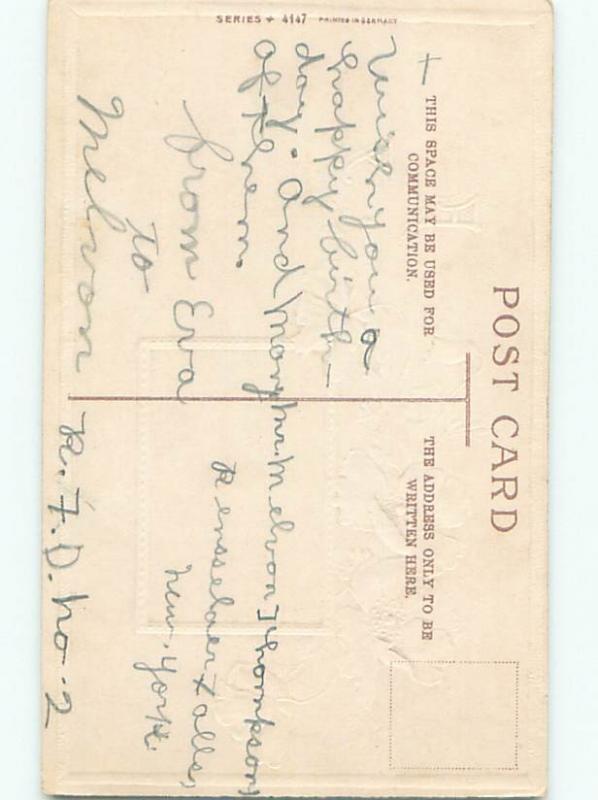 POST CARD
THIS SPACE MAY BE USED FOR
COMMUNICATION.
THE ADDRESS ONLY TO BE
WRITTEN HERE.
SERIES 4147 PRINTED IN GERMANY
I wish you a
happy birth-
day. and many
of them.
from Eva
to
Melvon
Mr. Melvon Thompson,
Rensselaer Falls,
New. York.
R. F. D. No 2